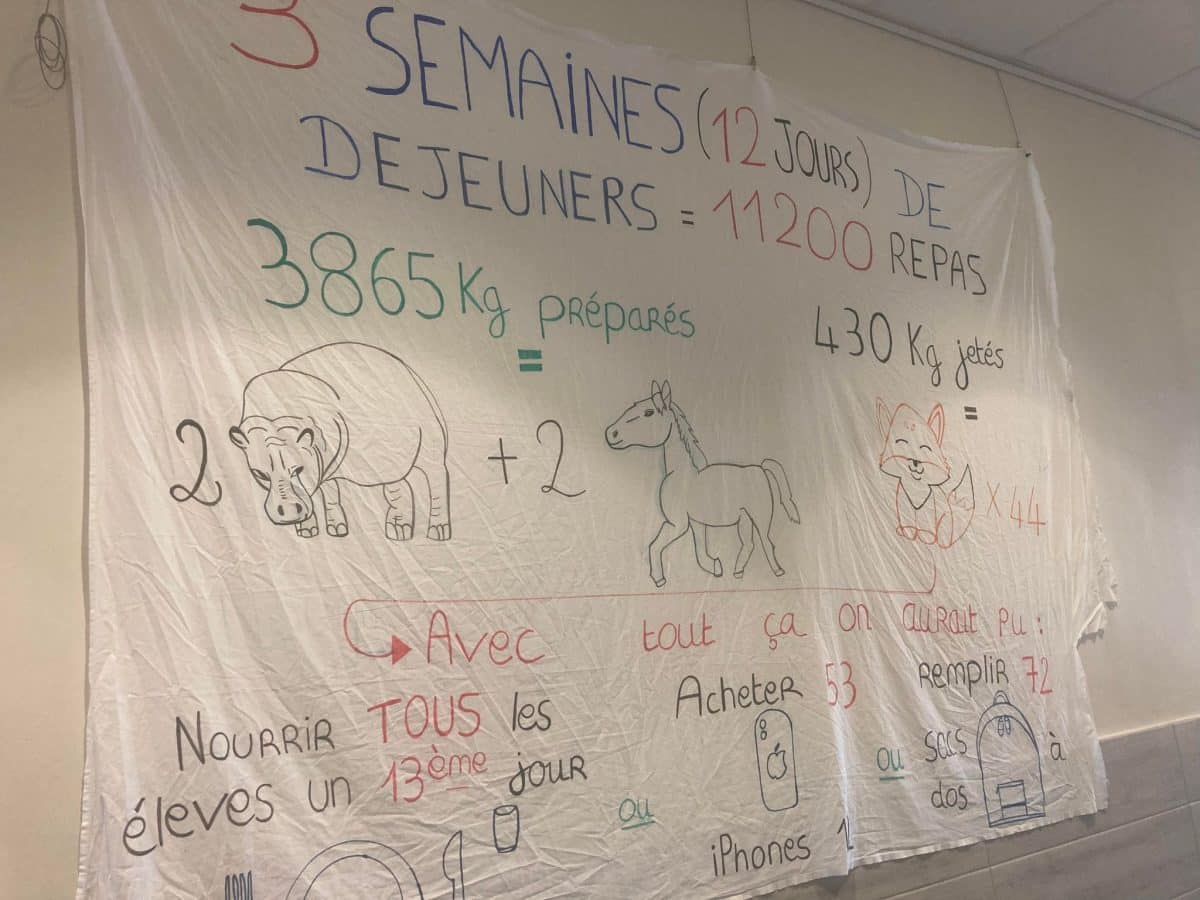 3 SEMAiNES (12 JOURS) DE
DEJEUNERS = 11200 REPAS
3865 Kg préparés
=
430 Kg jetés
=
2 + 2
x 44
Avec tout ça on aurait pu :
Nourrir TOUS les
éleves un 13ème jour
ou
Acheter 53
iPhones
ou
remplir 72
sacs à
dos